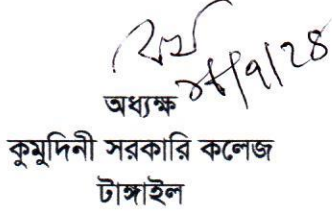 অধ্যক্ষ
কুমুদিনী সরকারি কলেজ
টাঙ্গাইল